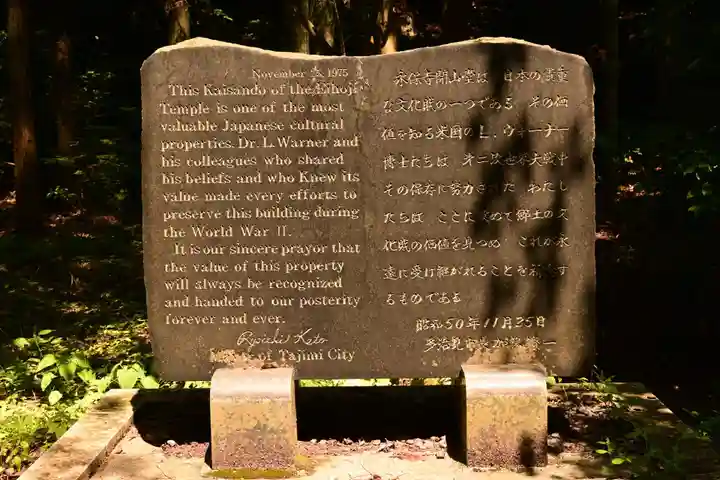 November 25, 1975
This Kaisando of the Eihoji
Temple is one of the most
valuable Japanese cultural
properties. Dr. L. Warner and
his colleagues who shared
his beliefs and who Knew its
value made every efforts to
preserve this building during
the World War II.
It is our sincere prayor that
the value of this property
will always be recognized
and handed to our posterity
forever and ever.
Ryoichi Kato
Mayor of Tajimi City
永保寺開山堂は 日本の貴重
な文化財の一つである その価
値を知る米国のL.ウォーナー
博士たちは 第二次世界大戦中
その保存に努力された わたし
たちは ここに改めて郷土の文
化財の価値を見つめ これが永
遠に受け継がれることを祈念す
るものである
昭和50年11月25日
多治見市長加藤一